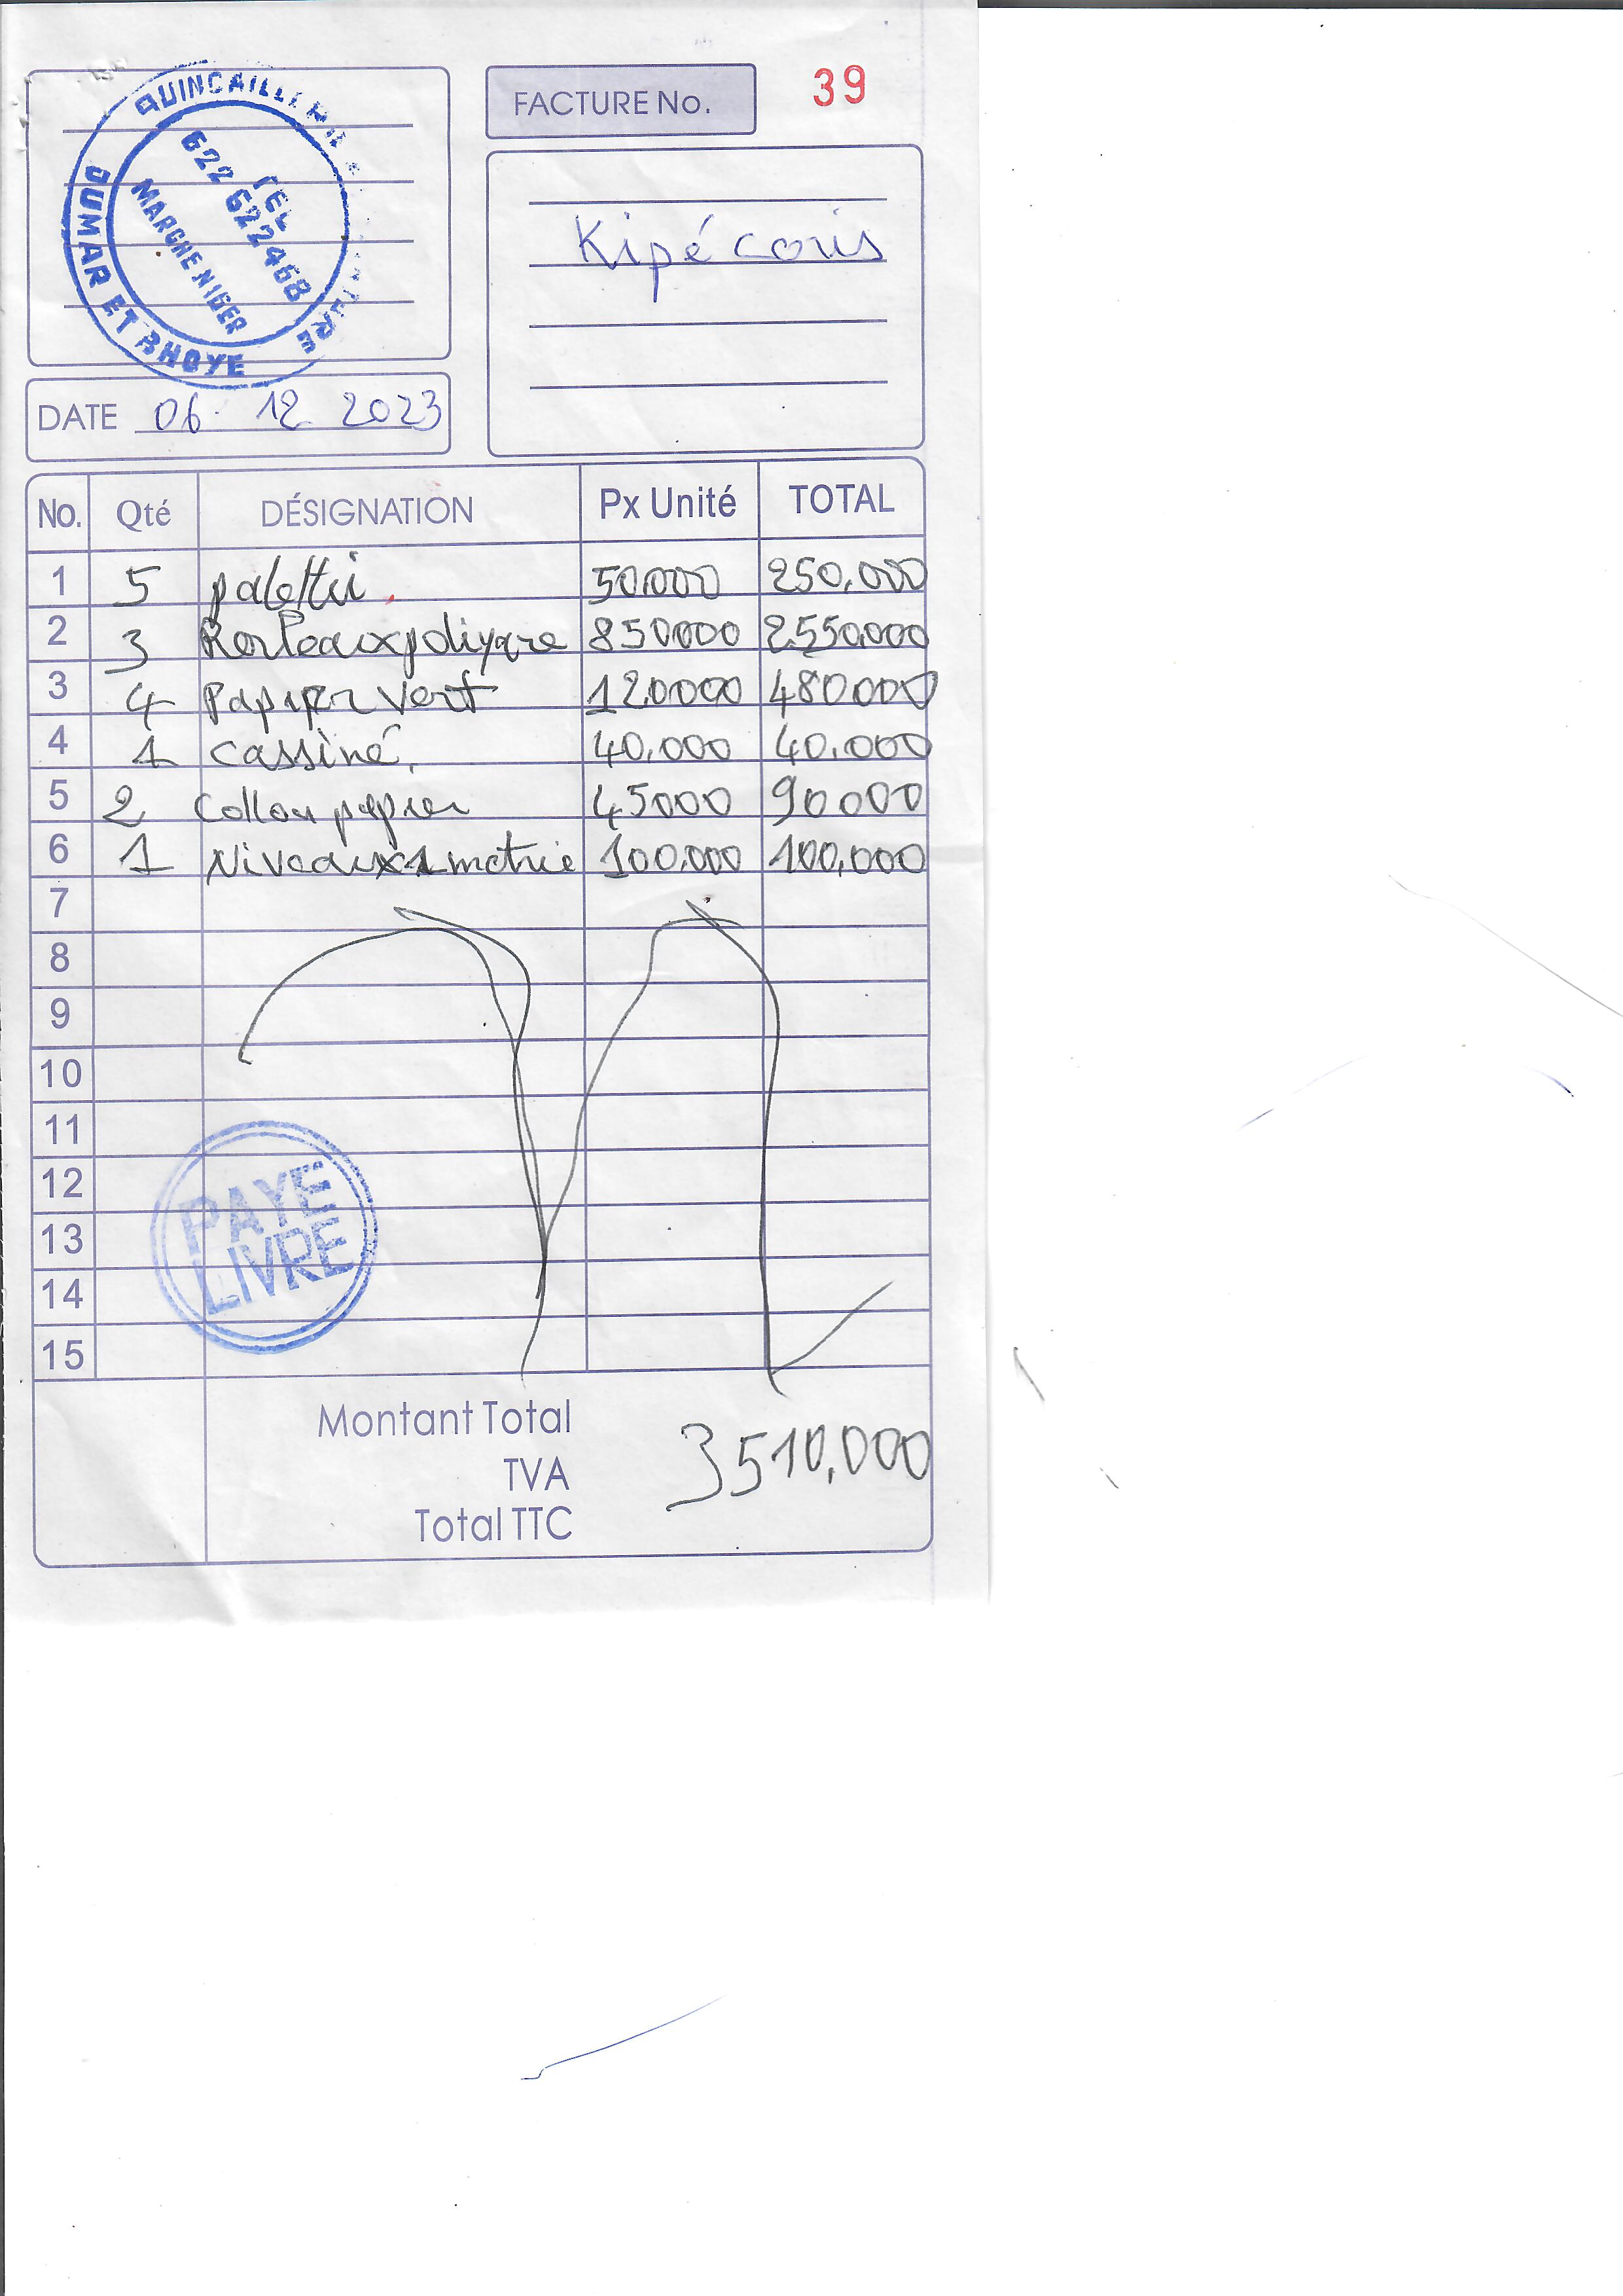 QUINCAILLERIE
OUMAR ET BHOYE
TEL
622 622468
MARCHE NIGER
FACTURE No. 39
Kipé coris
DATE 06. 12 2023
No. Qté DÉSIGNATION Px Unité TOTAL
1 5 palettri 50.000 250.000
2 3 Rouleaux poliyane 850000 2550.000
3 4 Papier Vert 120000 480000
4 1 Cassiné 40.000 40.000
5 2 Collou papier 45000 90000
6 1 Niveaux 1 metrie 100.000 100.000
7
8
9
10
11
12
13
14
15
PAYE
LIVRE
Montant Total
TVA
Total TTC
3510.000